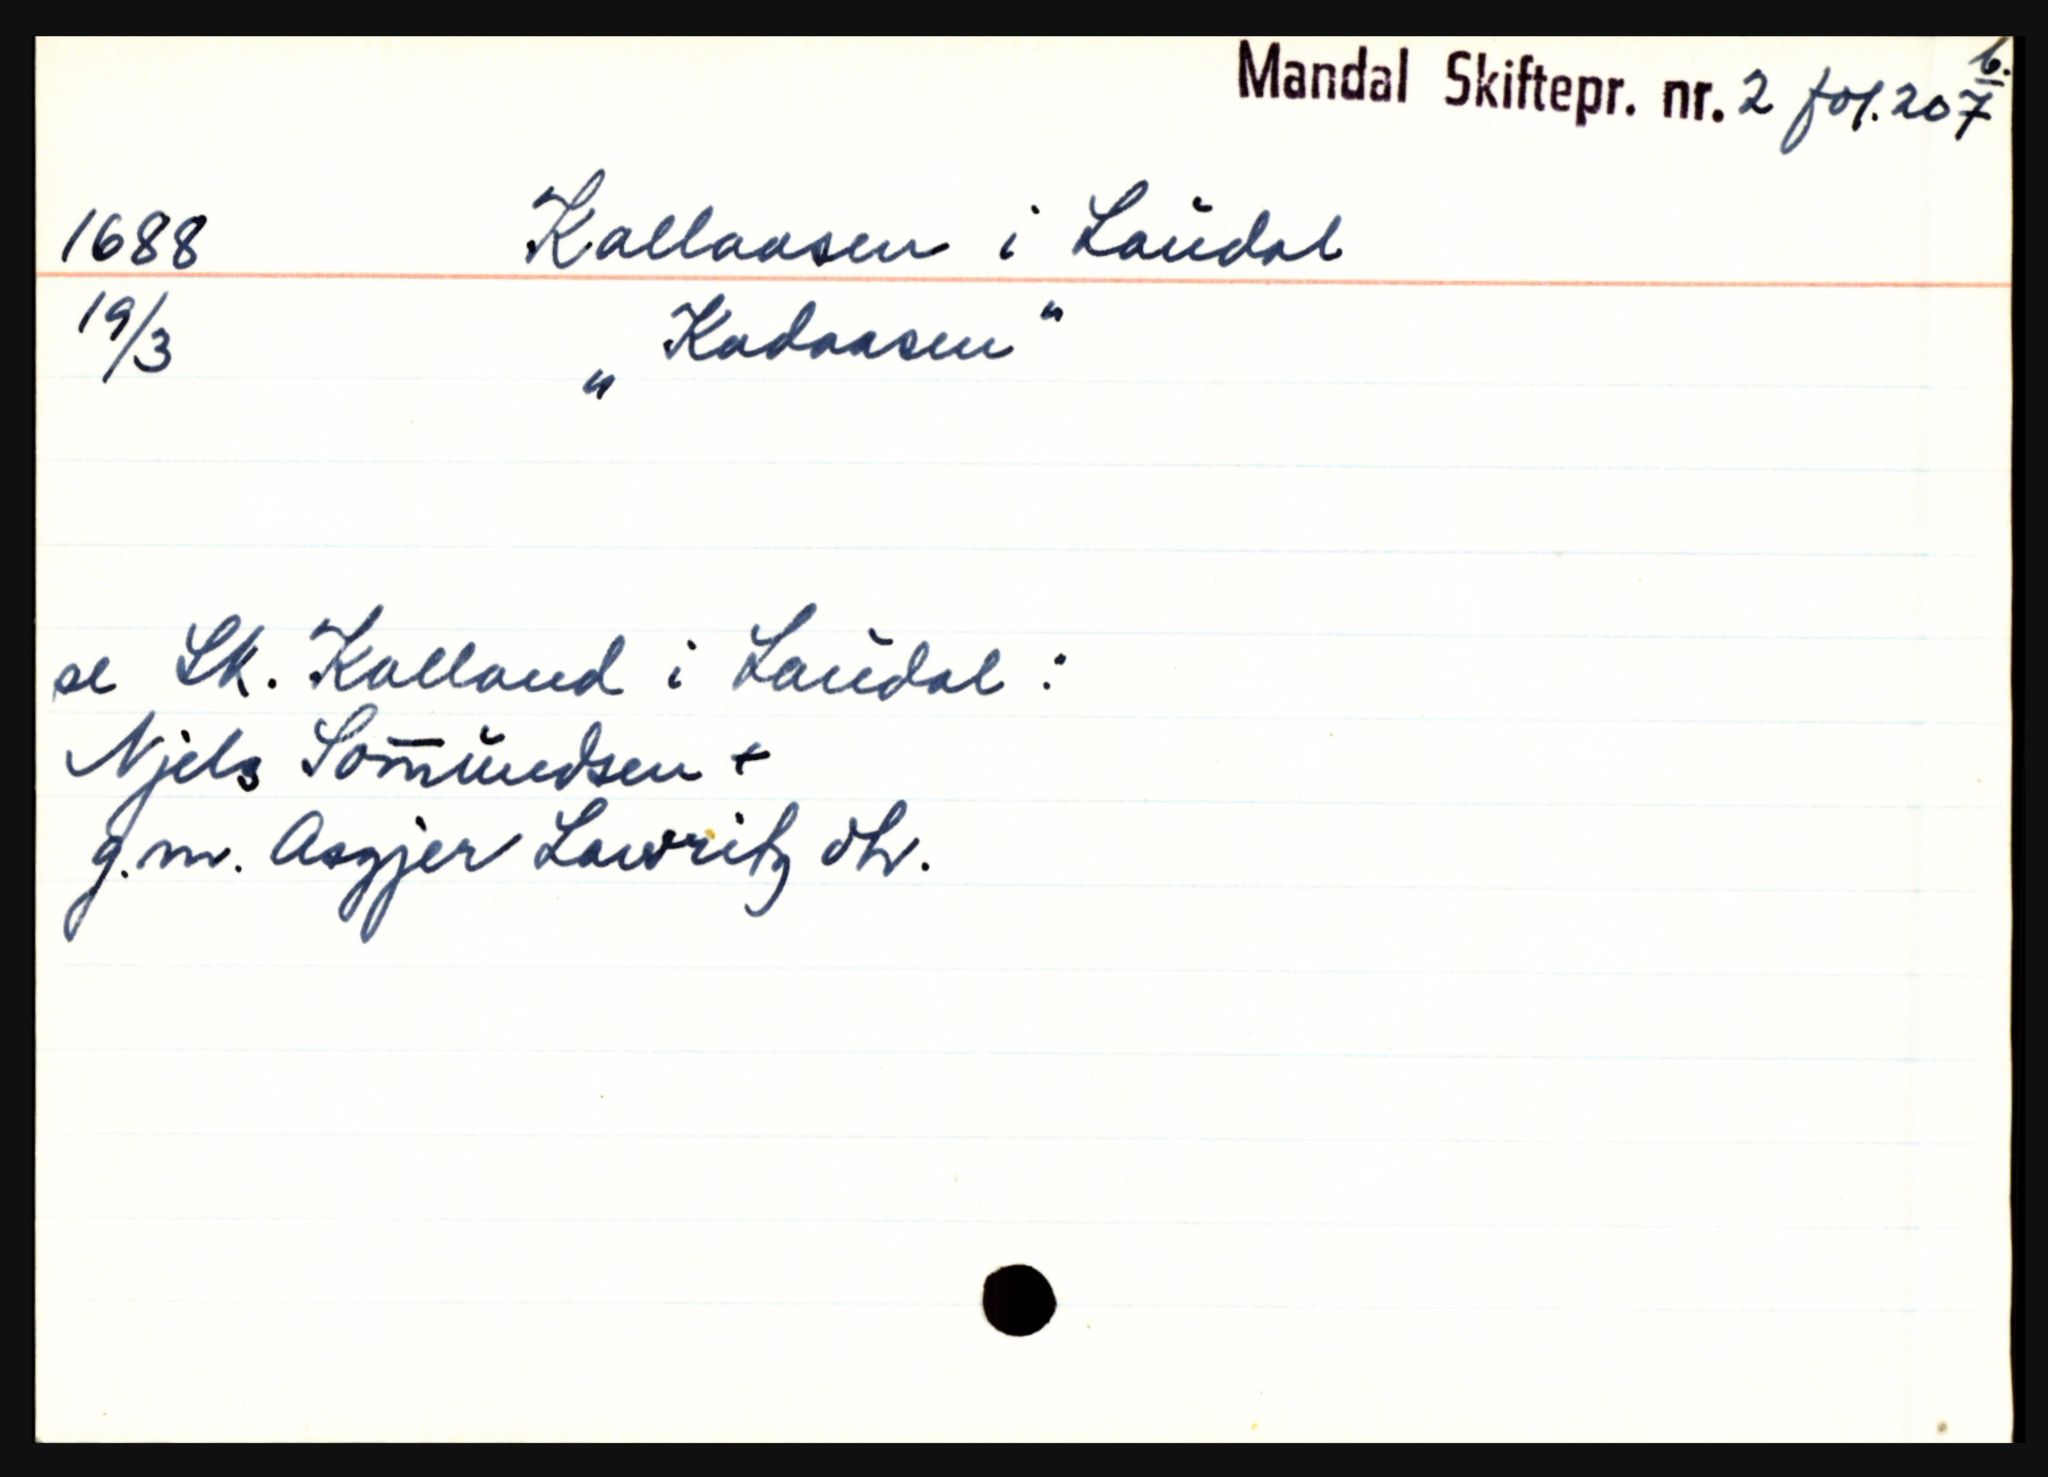 Mandal Skiftepr. nr. 2 fol. 207 b.
1688 Kallaasen i Laudal
19/3 „Kadaasen“
se Sk. Kalland i Laudal:
Njels Som̅undsen +
g.m. Asgjer Lawritz dtr.